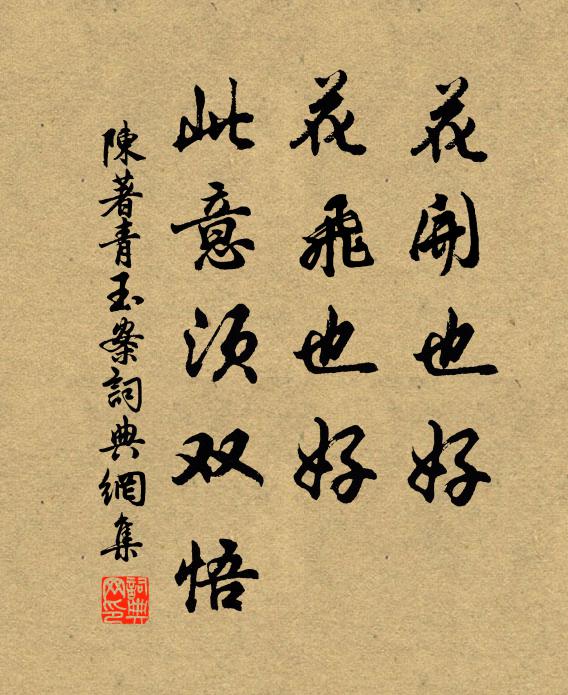 花開也好
花飛也好
此意须双悟
陳著青玉案詞典網集
詞典网印